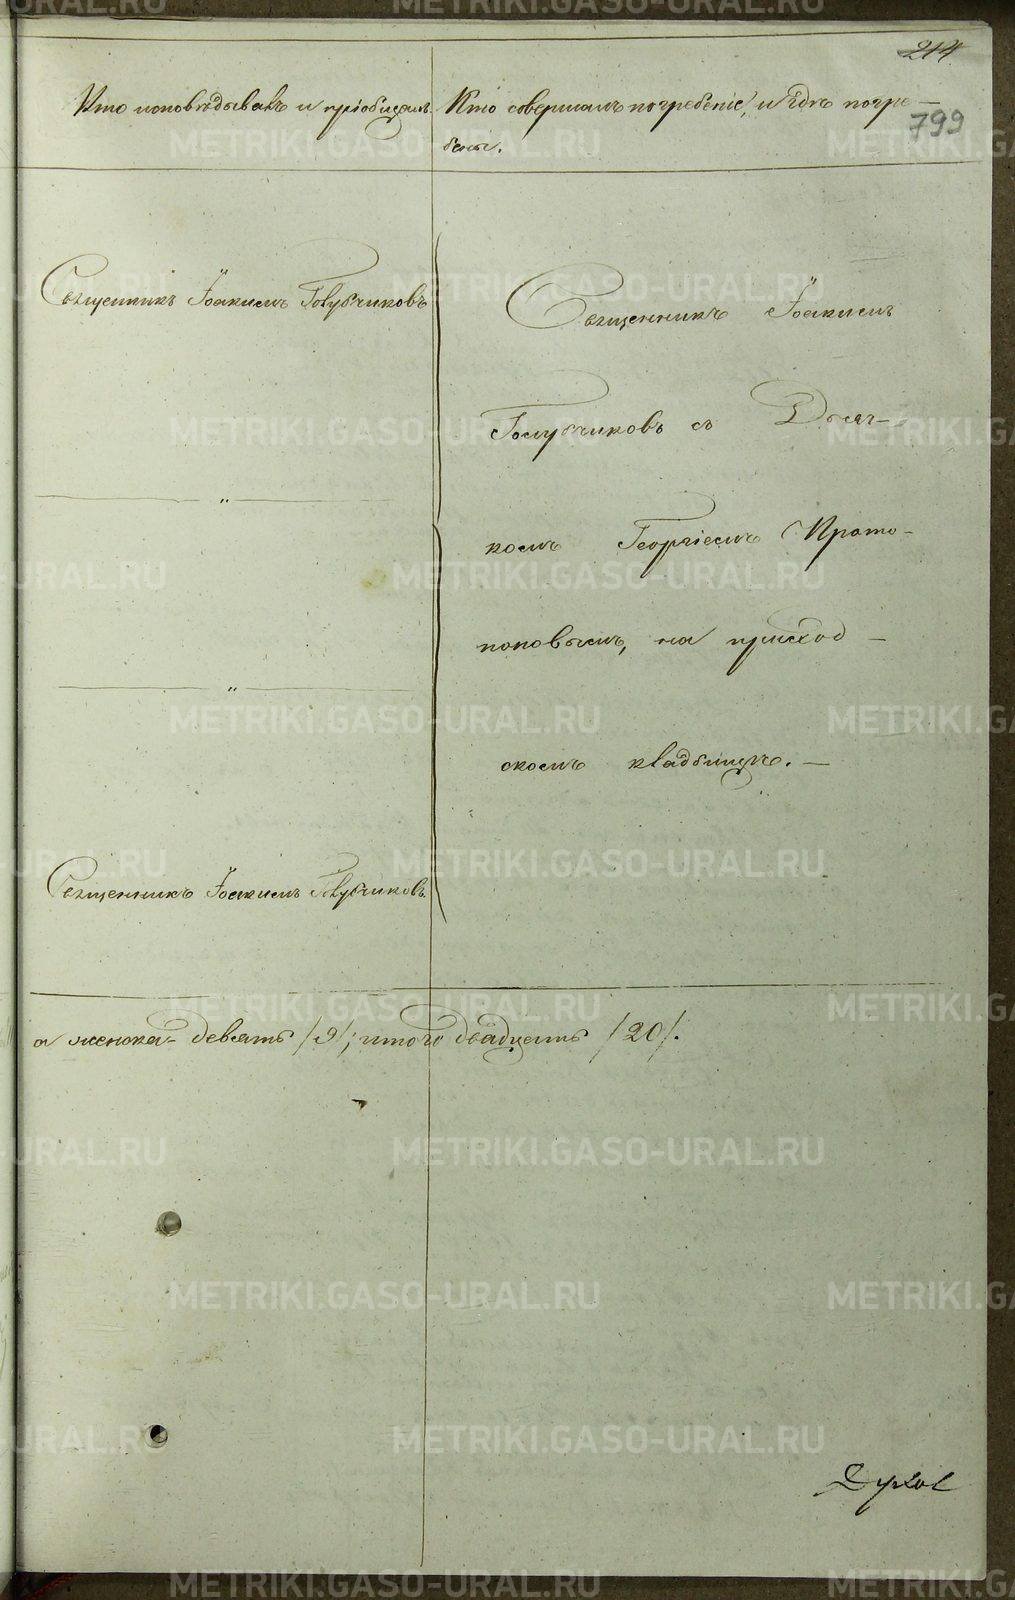 214
799
Кто исповѣдывалъ и пріобщалъ.
Кто совершалъ погребеніе, и гдѣ погре-
бены.
Священникъ Іоакимъ Голубчиковъ
Священникъ Іоакимъ
Голубчиковъ съ Дьяч-
комъ Георгіемъ Прото-
поповымъ, на приход-
скомъ кладбищѣ. —
— " —
— " —
Священникъ Іоакимъ Голубчиковъ.
а женска - девять /9/; итого двадцать /20/.
Духов
METRIKI.GASO-URAL.RU